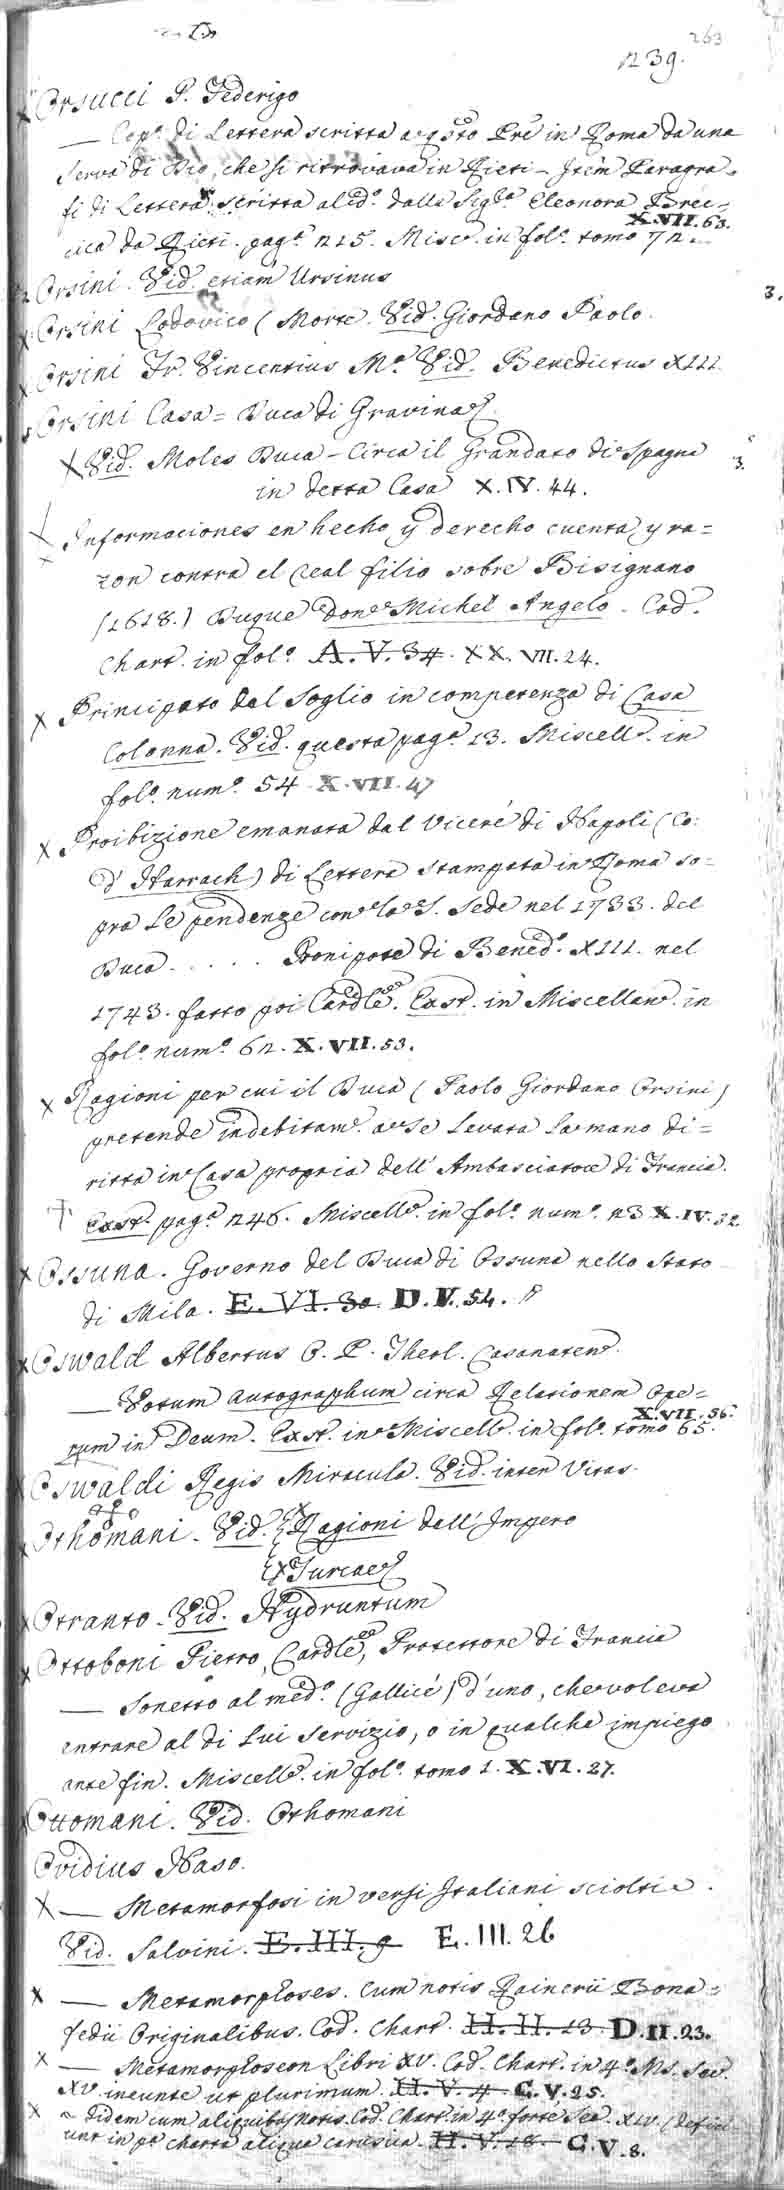 263
239.
Orsucci P. Federigo
— Cop.ª di Lettera scritta a q.sto Pre in Roma da una
serva di Dio, che si ritrovava in Rieti - Item Paragra-
fi di Lettera scritta al cd.º dalla Sig.ra Eleonora Brec-
cica da Rieti. pag.ª 215. Misc. in fol.º tomo 72. X.VII.63.
Orsini. Vid. etiam Ursinus
Orsini Lodovico (Morte. Vid. Giordano Paolo.
Orsini Fr. Vincentius M.ª Vid. Benedictus XIII.
Orsini Casa = Duca di Gravina
Vid. Moles Duca - Circa il Grandato di Spagna
in detta Casa X.IV.44.
Informaciones en hecho y derecho cuenta y ra=
zon contra el Real filio sobre Bisignano
(1618.) Duque don Michel Angelo. Cod.
Chart. in fol.º A.V.34. XX.VII.24.
Principato del Soglio in competenza di Casa
Colonna. Vid. questa pag.ª 13. Miscell. in
fol.º num.º 54 X.VII.47
Proibizione emanata dal Viceré di Napoli (Co:
d'Harrach) di Lettera stampata in Roma so=
pra le pendenze con la S. Sede nel 1733. del
Duca . . . . . Pronipote di Bened.º XIII. nel
1743. fatto poi Cardle. Exst. in Miscellan. in
fol.º num.º 62. X.VII.53.
Ragioni per cui il Duca (Paolo Giordano Orsini)
pretende indebitam. a se levata la mano di=
ritta in Casa propria dell'Ambasciatore di Francia.
Exst. pag.ª 246. Miscell. in fol.º num.º 23 X.IV.32.
Ossuna. Governo del Duca di Ossuna nello Stato
di Mila. E.VI.30. D.V.54.
Oswald Albertus O. P. Theol. Casanaten.
— Votum autographum circa Relationem Ope=
rum in Deum. Exst. in Miscell. in fol.º tomo 65. X.VII.56.
Oswaldi Regis Miracula. Vid. inter Vitas.
Othomani. Vid. Ragioni dell'Impero
Turcae
Otranto. Vid. Hydruntum
Ottoboni Pietro, Cardle, Protettore di Francia
— Sonetto al med.º (Gallicé) d'uno, che voleva
entrare al di lui Servizio, o in qualche impiego
ante fin. Miscell. in fol.º tomo 1. X.VI.27.
Ottomani. Vid. Othomani
Ovidius Naso.
— Metamorfosi in versi Italiani sciolti.
Vid. Salvini. E.III.9 E.III.26
— Metamorphoses. Cum notis Rainerii Bona=
fedii Originalibus. Cod. Chart. H.II.13. D.II.23.
— Metamorphoseon Libri XV. Cod. Chart. in 4.º Ms. Sec.
XV. ineunte ut plurimum. H.V.4. C.V.25.
— Iidem cum aliquibus notis. Cod. Chart. in 4.º forte Sec. XIV. (defici
unt in pª charta aliqua H.V.18. C.V.8.